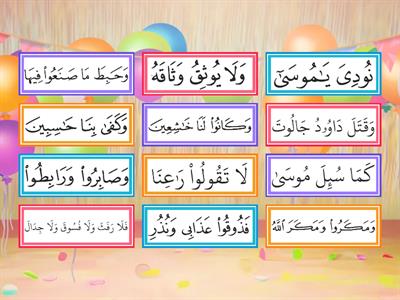 نُودِيَ يَـٰمُوسَىٰٓ
وَلَا يُوثِقُ وَثَاقَهُ
وَحَبِطَ مَا صَنَعُوا۟ فِيهَا
وَقَتَلَ دَاوُۥدُ جَالُوتَ
وَكَانُوا۟ لَنَا خَـٰشِعِينَ
وَكَفَىٰ بِنَا حَـٰسِبِينَ
كَمَا سُئِلَ مُوسَىٰ
لَا تَقُولُوا۟ رَٰعِنَا
وَصَابِرُوا۟ وَرَابِطُوا۟
وَمَكَرُوا۟ وَمَكَرَ ٱللَّهُ
فَذُوقُوا۟ عَذَابِى وَنُذُرِ
فَلَا رَفَثَ وَلَا فُسُوقَ وَلَا جِدَالَ